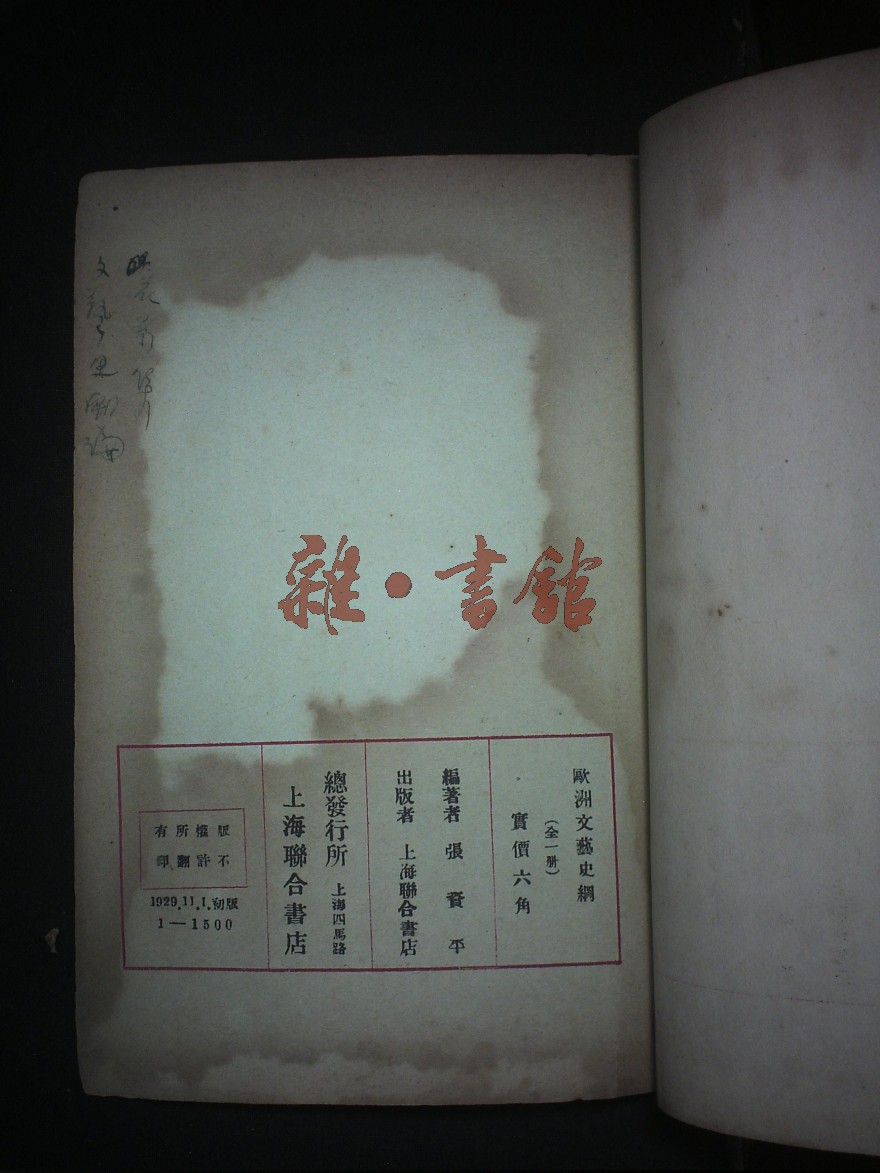 雜·書館
歐洲文藝史綱
（全一册）
實價六角
編著者 張資平
出版者 上海聯合書店
總發行所 上海四馬路
上海聯合書店
版權所有
不許翻印
1929.11.1.初版
1—1500